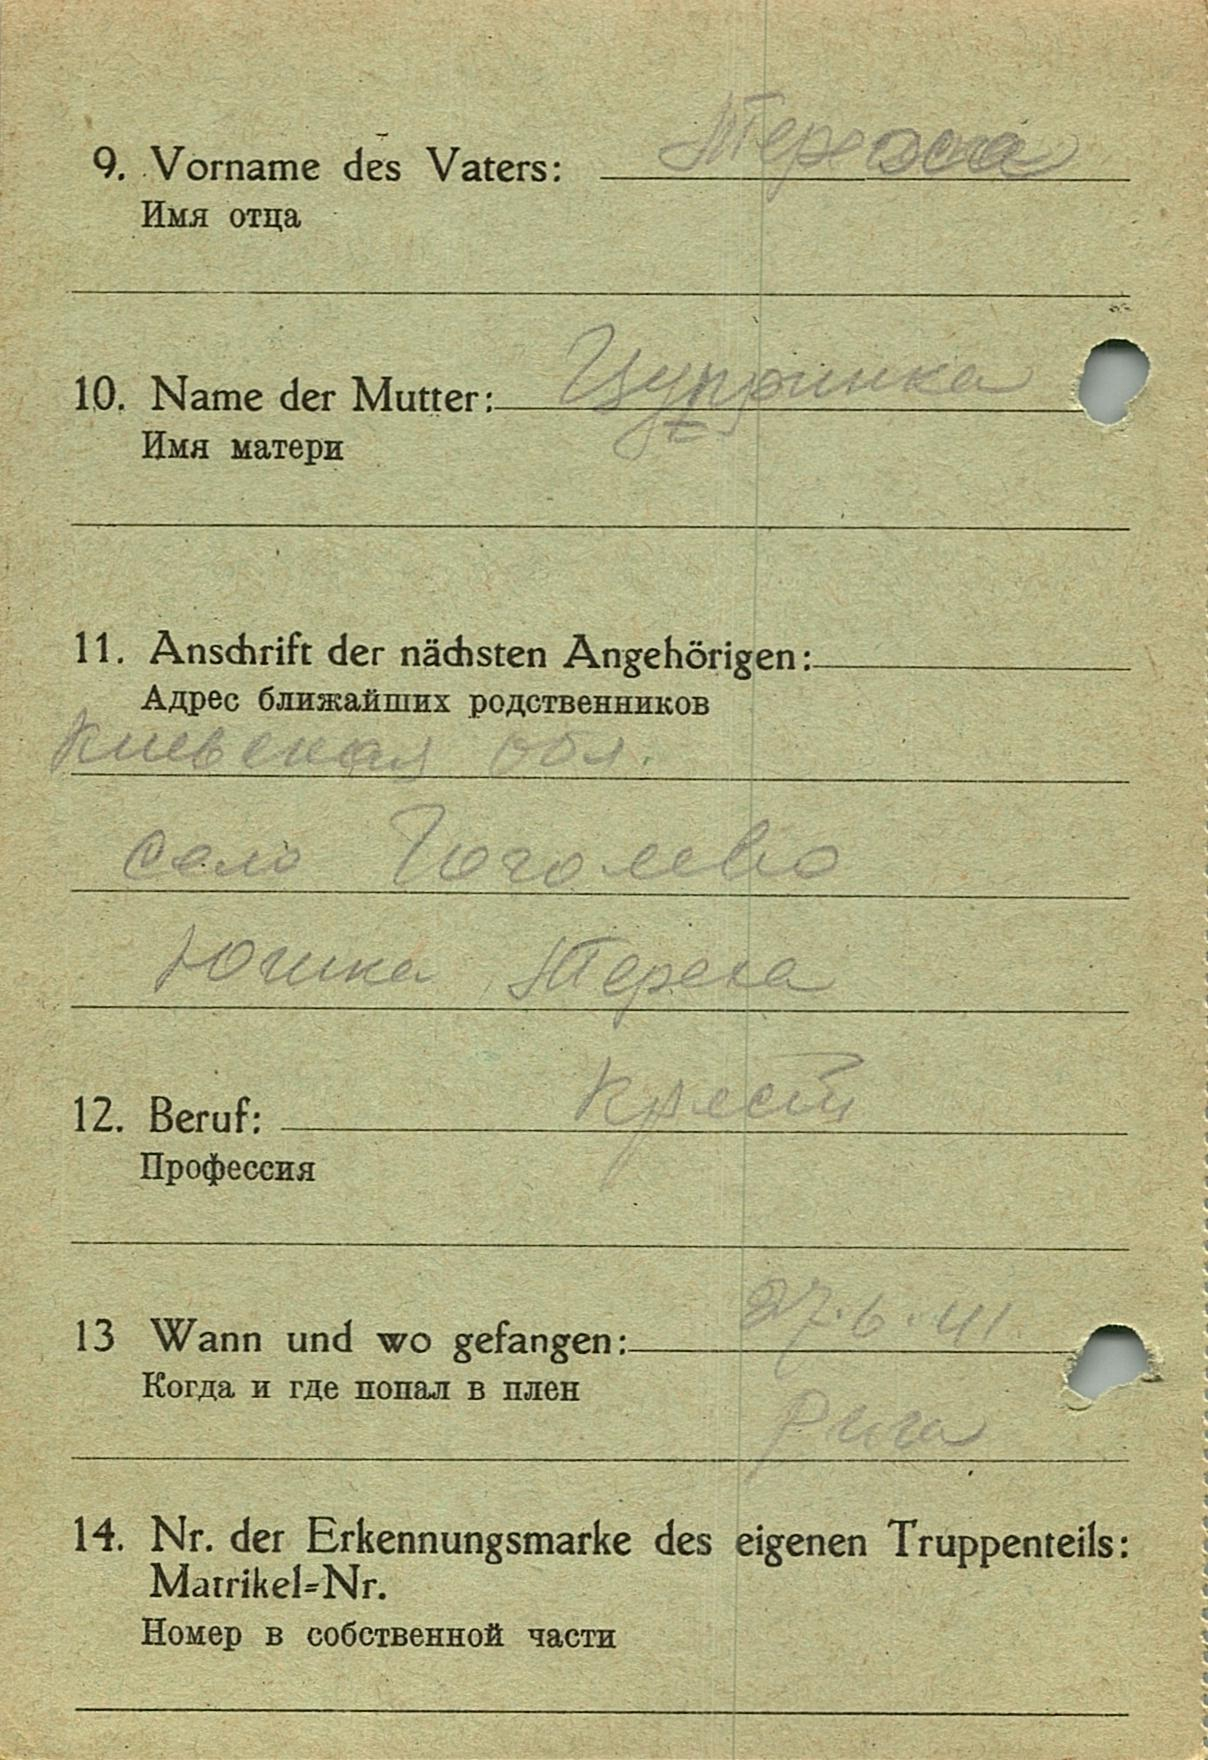 9. Vorname des Vaters:
Имя отца
10. Name der Mutter: Цупринка
Имя матери
11. Anschrift der nächsten Angehörigen:
Адрес ближайших родственников
Киевская обл.
село Гоголево
Юшка Тереха
12. Beruf: Крест
Профессия
13 Wann und wo gefangen: 27.6.41
Когда и где попал в плен
Рига
14. Nr. der Erkennungsmarke des eigenen Truppenteils:
Matrikel=Nr.
Номер в собственной части